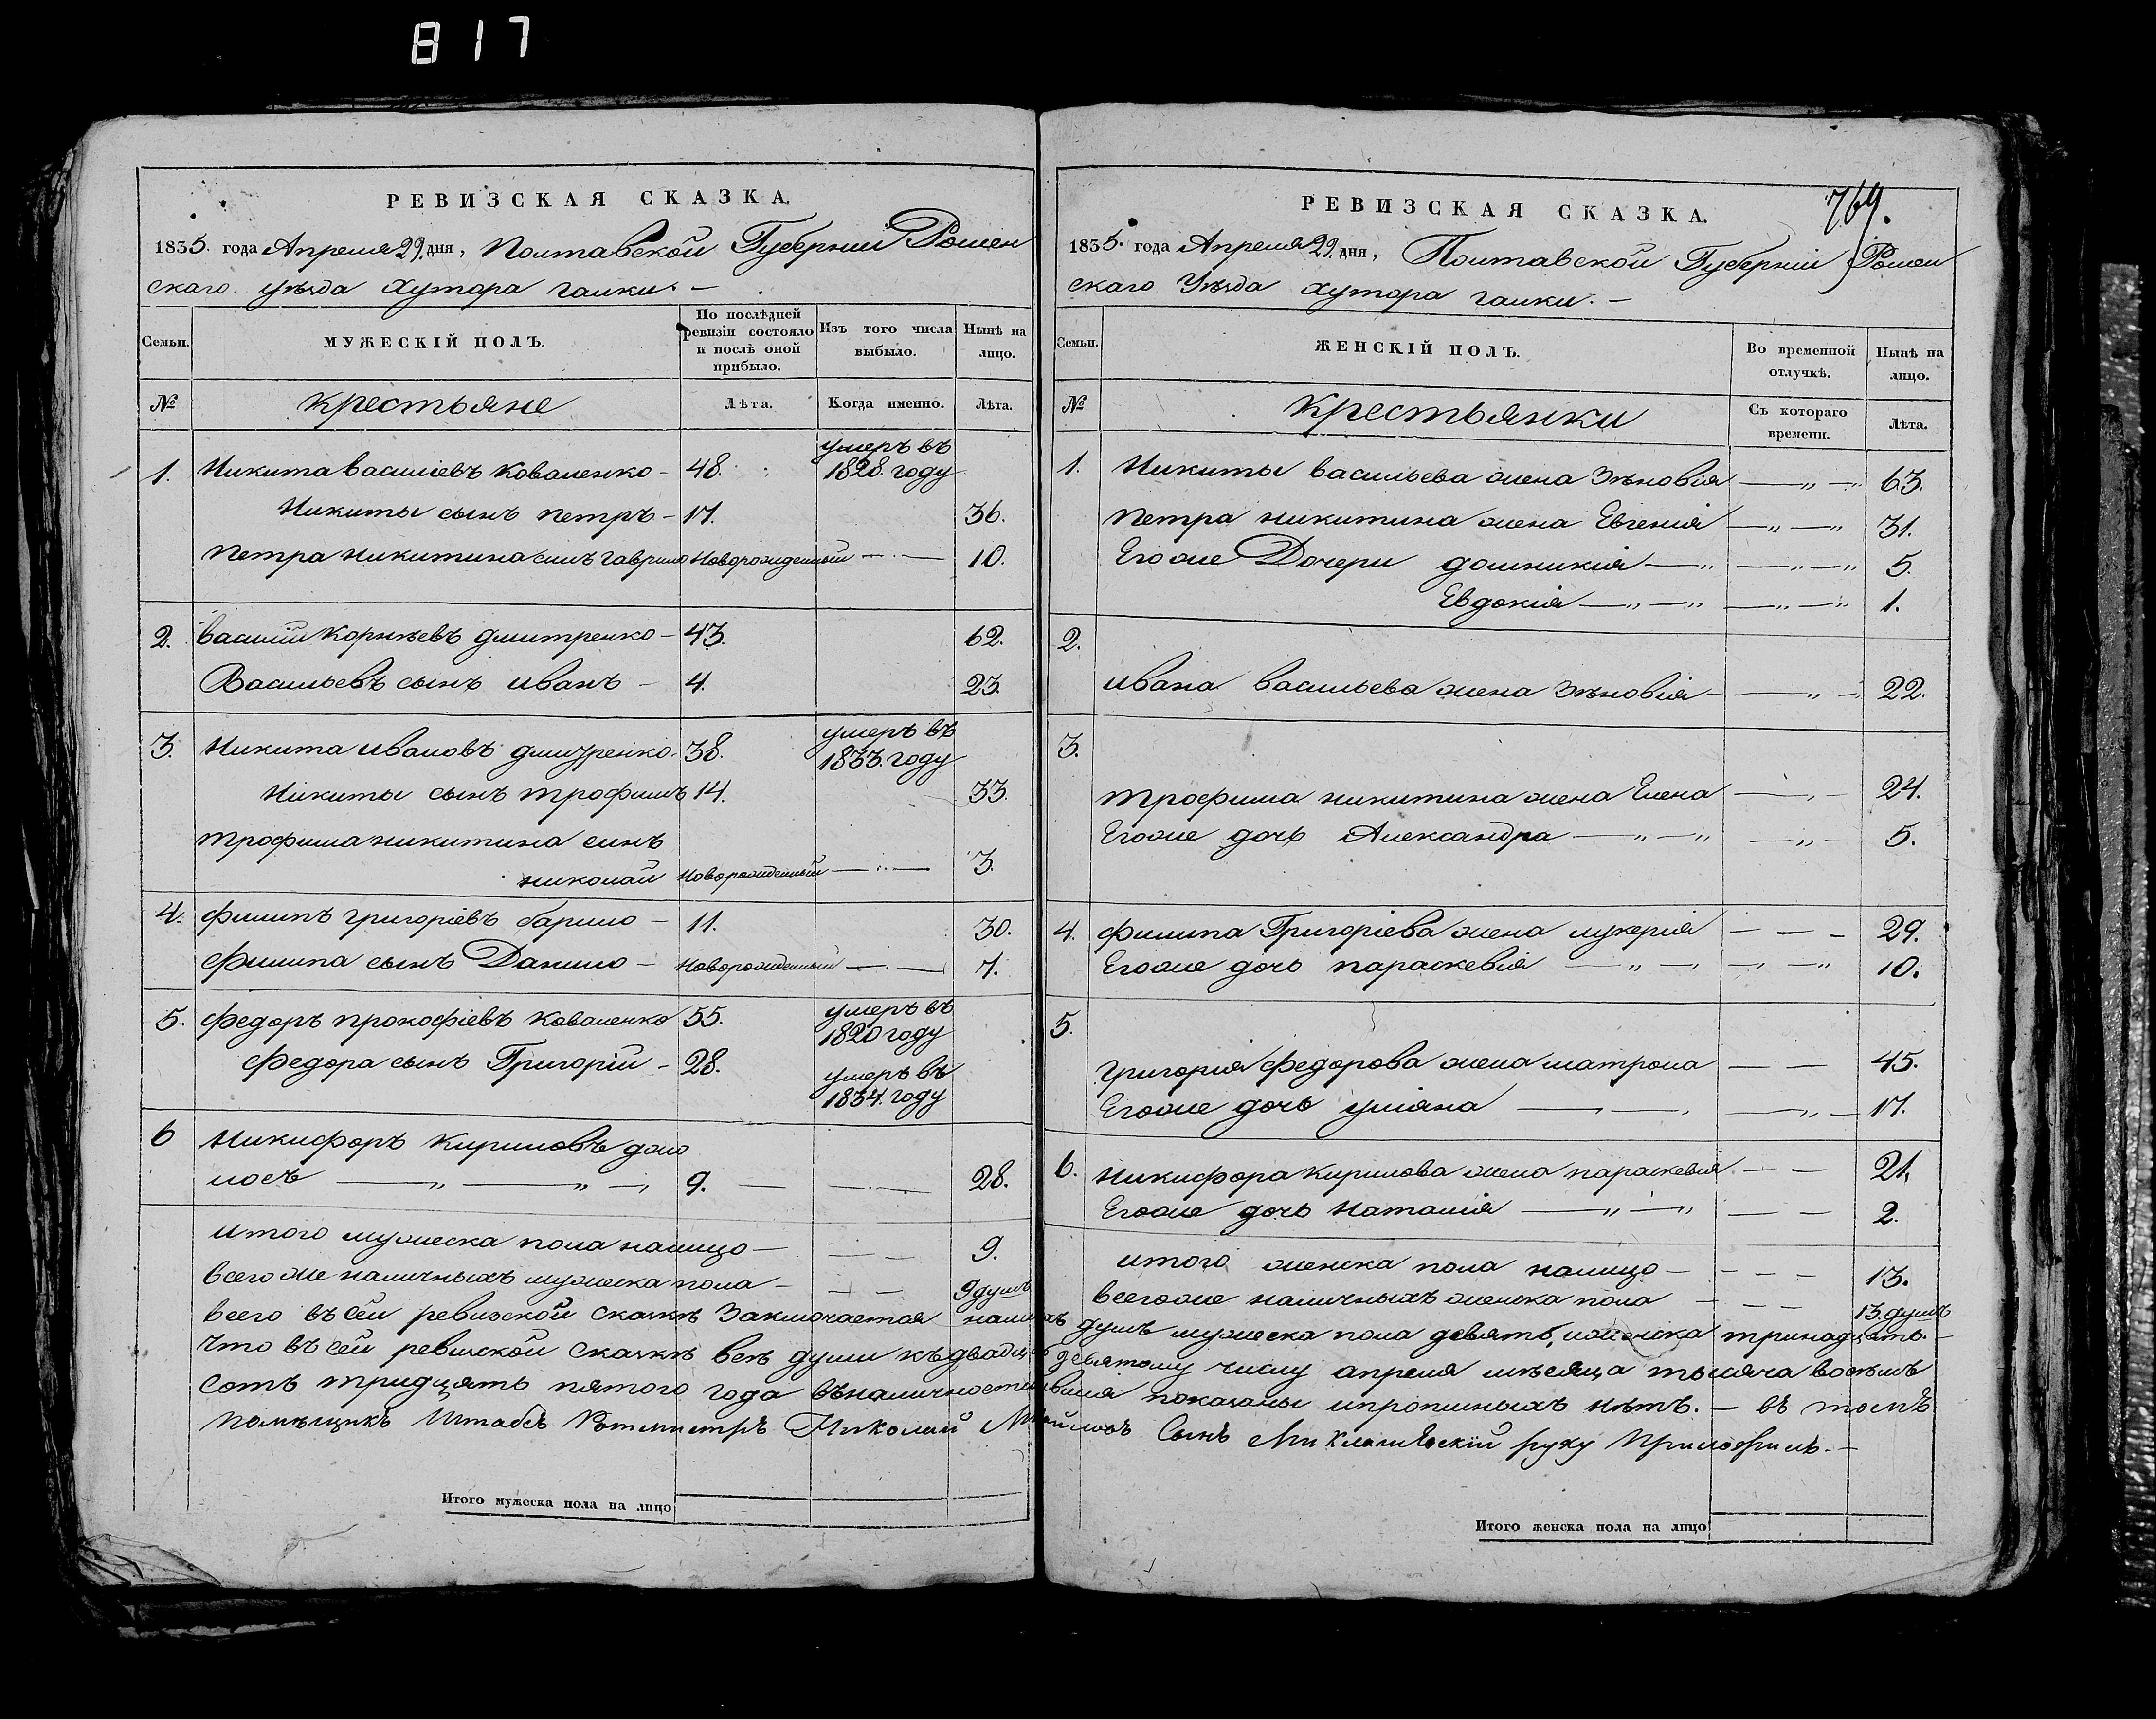 817
РЕВИЗСКАЯ СКАЗКА.
1835. года Апреля 29. дня, Полтавской Губерніи Ромен
скаго уѣзда хутора галки. —
Семьи.
МУЖЕСКІЙ ПОЛЪ.
По послѣдней ревизіи состояло и послѣ оной прибыло.
Изъ того числа выбыло.
Нынѣ на лицо.
№
крестьяне
Лѣта.
Когда именно.
Лѣта.
1. Никита василіевъ коваленко — 48. умеръ въ 1828. году
Никиты сынъ петръ — 17. 36.
петра никитина синъ гаврило новорожденный — 10.
2. василій корнѣевъ дмитренко — 43. 62.
Васильевъ сынъ иванъ — 4. 23.
3. Никита ивановъ 38. умеръ въ 1833. году
Никиты сынъ трофимъ 14. 33.
трофима никитина синъ
николай новорожденный — 3.
4. филипъ григоріевъ барило — 11. 30.
филипа сынъ Данило — новорожденный — 7.
5. федоръ прокофіевъ коваленко 55. умеръ въ 1820 году
федора сынъ Григорій — 28. умеръ въ 1834. году
6 никифоръ кириловъ
9. — 28.
итого мужеска пола налицо — 9.
всего же наличныхъ мужеска пола — 9 душъ
769.
РЕВИЗСКАЯ СКАЗКА.
1835. года Апреля 29. дня, Полтавской Губерніи Ромен
скаго Уѣзда хутора галки. —
Семьи.
ЖЕНСКІЙ ПОЛЪ.
Во временной отлучкѣ.
Нынѣ на лицо.
№
крестьянки
Съ котораго времени.
Лѣта.
1. Никиты васильева жена Зѣновія — 63.
петра никитина жена Евгенія — 31.
Егоже Дочери домникія — 5.
Евдокія — 1.
2.
ивана васильева жена зѣновія — 22.
3.
трофима никитина жена Елена — 24.
Егоже дочь Александра — 5.
4. филипа Григоріева жена лукерія — 29.
Егоже дочь параскевія — 10.
5.
григорія федорова жена матрона — 45.
Егоже дочь уліяна — 17.
6. никифора кирилова жена параскевія — 21.
Егоже дочь наталія — 2.
итого женска пола налицо — 13.
всегоже наличныхъ женска пола — 13. душъ
всего въ сей ревизской сказкѣ заключается душъ мужеска пола девять, иженска тринадцать. —
Что въ сей ревизской сказкѣ всѣ души къ двадцать девятому числу апреля мѣсяца тысяча восемъ
сотъ тридцять пятого года въналичности показаны ипрописныхъ нѣтъ. — въ томъ
помѣщикъ Штабсъ Ротмистръ Николай Михайловъ Сынъ Миклашевскій руку Приложилъ. —
Итого мужеска пола на лицо
Итого женска пола на лицо